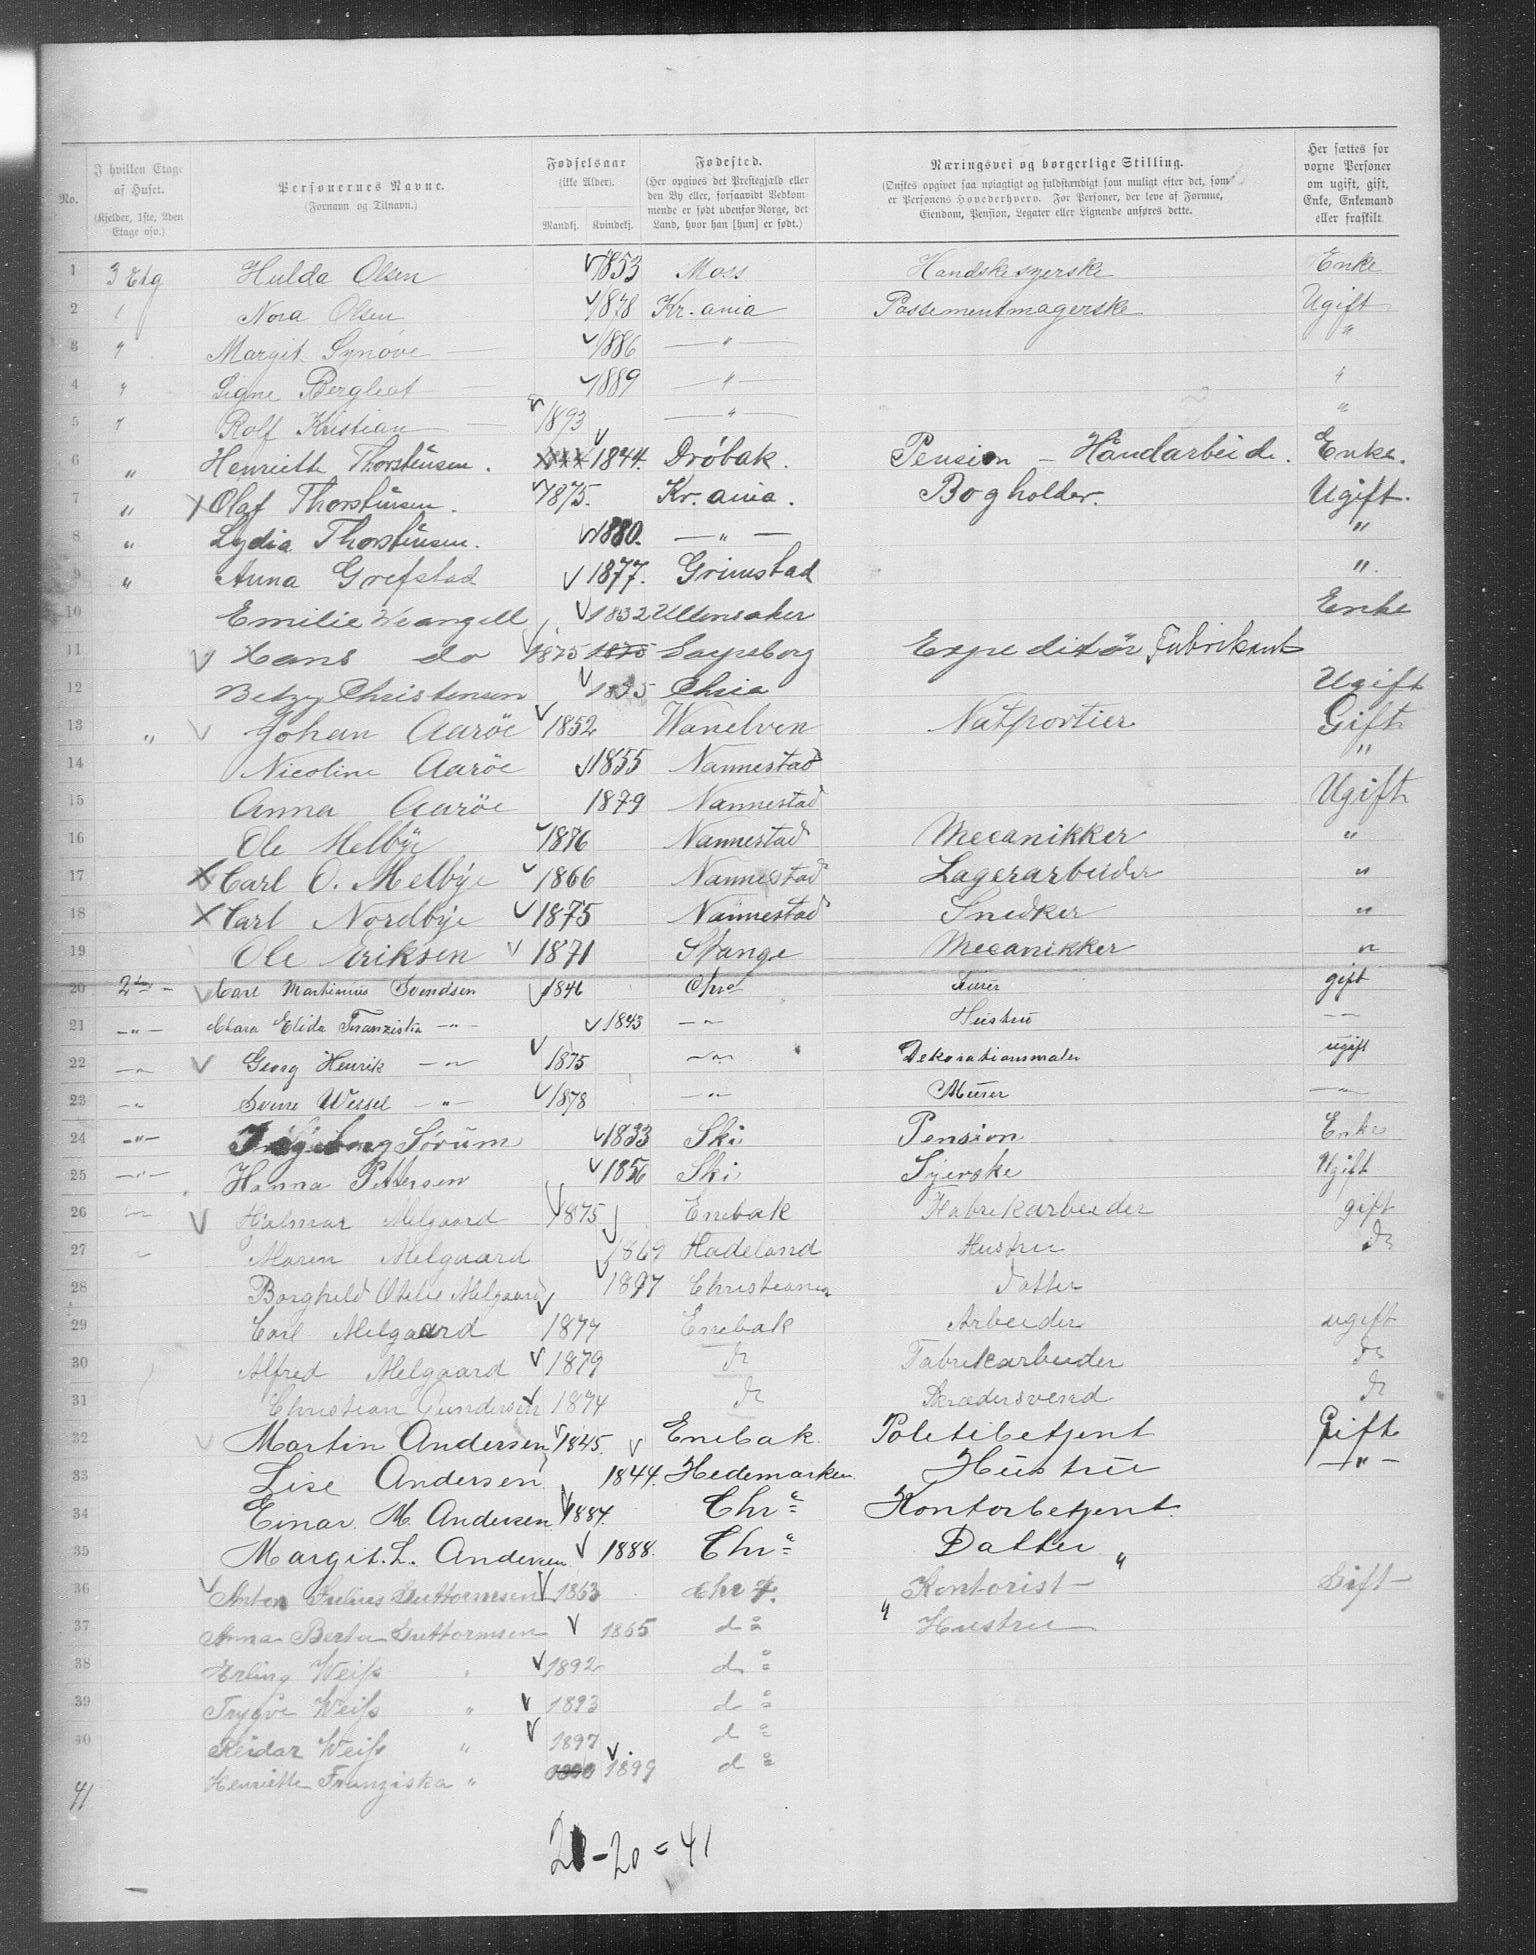 No.
I hvilken Etage af Huset.
(Kjelder, 1ste, 2den Etage osv.)
Personernes Navne.
(Fornavn og Tilnavn.)
Fødselsaar
(ikke Alder).
Mandkj. Kvindekj.
Fødested.
(Her opgives det Prestegjæld eller den By eller, forsaavidt Vedkommende er født udenfor Norge, det Land, hvor han [hun] er født.)
Næringsvei og borgerlige Stilling.
(Ønskes opgivet saa nøiagtigt og fuldstændigt som muligt efter det, som er Personens Hovederhverv. For Personer, der leve af Formue, Eiendom, Pension, Legater eller Lignende anføres dette.
Her sættes for voxne Personer om ugift, gift, Enke, Enkemand eller fraskilt.
1 3 Etg Hulda Olsen 1853 Moss Handskesyerske Enke
2 " Nora Olsen 1878 Kr.ania Possementmagerske Ugift
3 " Margit Synöve — 1886 — " — "
4 " Signe Bergliot — 1889 — " — "
5 " Rolf Kristian — 1893 — " — "
6 " Henriette Thorstensen. 1844. Dröbak. Pension – Håndarbeide. Enke.
7 " Olaf Thorstensen. 1875. Kr.ania. Bogholder. Ugift.
8 " Lydia Thorstensen. 1880. — " — "
9 " Anna Grefstad 1877. Grimstad "
10 Emilie Wrangell 1832 Ullensaker Enke
11 Hans do 1875 1875 Sarpsborg Expeditør Fabrikant
12 Betzy Christensen Chria Ugift
13 " Johan Aaröe 1852 Wanelven Natportier Gift
14 Nicoline Aaröe 1855 Nannestad "
15 Anna Aaröe 1879 Nannestad Ugift
16 Ole Melbÿe 1876 Nannestad Mecanikker "
17 Carl O. Melbÿe 1866 Nannestad Lagerarbeider "
18 Carl Nordbÿe 1875 Nannestad Snedker "
19 Ole Eriksen 1871 Stange Mecanikker "
20 2den – Carl Martinius Svendsen 1846 Chra Murer gift
21 – " – Clara Elida Franziska – " – 1843 – " – Hustru – " –
22 – " – Georg Henrik – " – 1875 – " – Dekorationsmaler ugift
23 – " – Wessel – " – 1878 – " – Murer – " –
24 – " – Ingeborg Sörum 1833 Ski Pension Enke
25 – " – Hanna Pettersen 1856 Ski Syerske Ugift
26 – " – Hjalmar Melgaard 1875 Enebak Fabrikarbeider gift
27 " Maren Melgaard 1869 Hadeland Hustru do
28 Borghild Otelie Melgaard 1897 Christiania Datter
29 Carl Melgaard 1877 Enebak Arbeider ugift
30 Alfred Melgaard 1879 do Fabrikarbeider do
31 Christian Gundersen 1874 do Skrædersvend do
32 Martin Andersen 1845. Enebak. Politibetjent Gift
33 Lise Andersen 1844. Hedemarken. Hustru – " –
34 Einar. M. Andersen 1884. Chr.a Kontorbetjent.
35 Margit. L. Andersen 1888. Chr.a Datter "
36 Anton Julius Guttormsen 1863 Chr a. Kontorist Gift
37 Anna Berta Guttormsen 1865 do " Hustru
38 Erling Weiss " 1892 do
39 Trygve Weiss " 1893 do
40 Reidar Weiss " 1897 do
41 Henriette Franziska " 1899 do
21 – 20 = 41